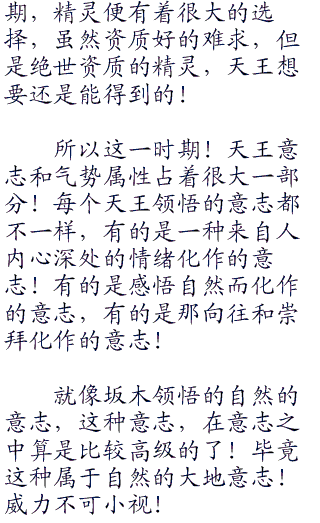 期，精灵便有着很大的选
择，虽然资质好的难求，但
是绝世资质的精灵，天王想
要还是能得到的！
所以这一时期！天王意
志和气势属性占着很大一部
分！每个天王领悟的意志都
不一样，有的是一种来自人
内心深处的情绪化作的意
志！有的是感悟自然而化作
的意志，有的是那向往和崇
拜化作的意志！
就像坂木领悟的自然的
意志，这种意志，在意志之
中算是比较高级的了！毕竟
这种属于自然的大地意志！
威力不可小视！